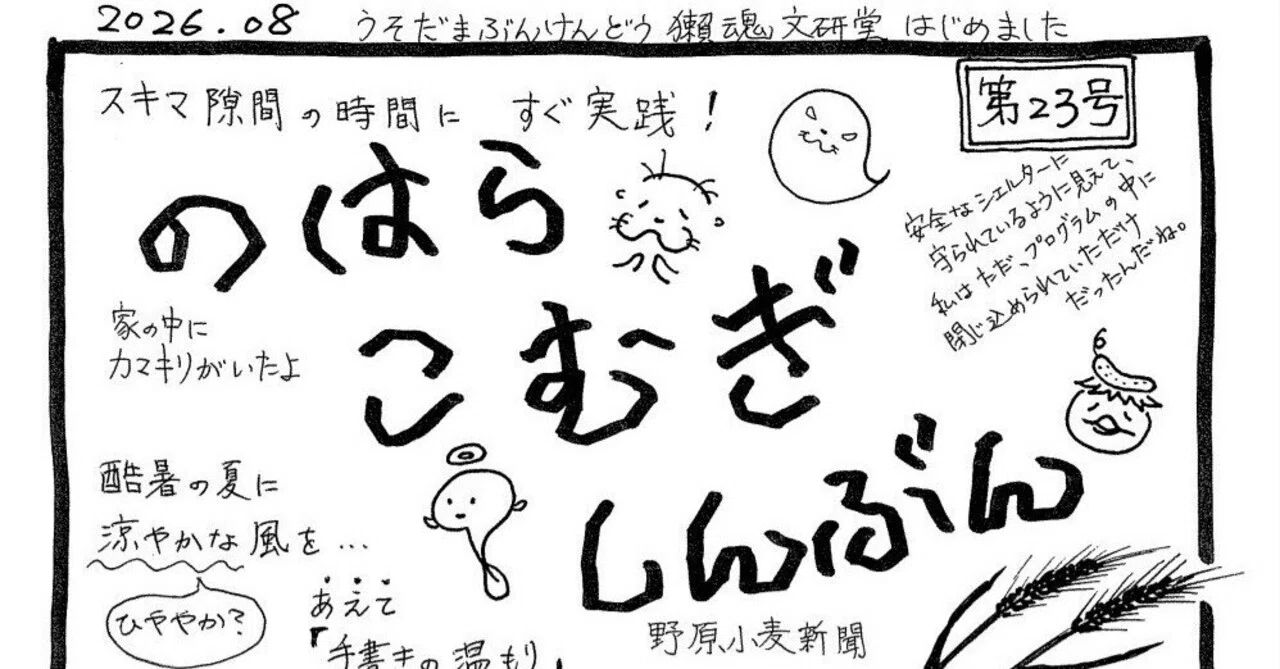 2026.08 うそだまぶんけんどう 獺魂文研堂 はじめました
スキマ 隙間の時間に すぐ実践!
第23号
のはら
こむぎ
しんぶん
野原小麦新聞
安全なシェルターに
守られているように見えて、
私はただ、プログラムの中に
閉じ込められていただけ
だったんだね。
家の中に
カマキリがいたよ
酷暑の夏に
涼やかな風を…
ひややか?
あえて
「手書きの温もり」